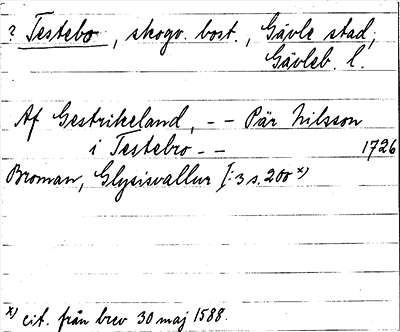 ? Testebo, skogv. bost., Gävle stad,
Gävleb. l.
Af Gestrikeland, - - Pär Nilsson
i Testebro - - 1726
Broman, Glysisvallur I:3 s. 200 x)
x) cit. från brev 30 maj 1588.